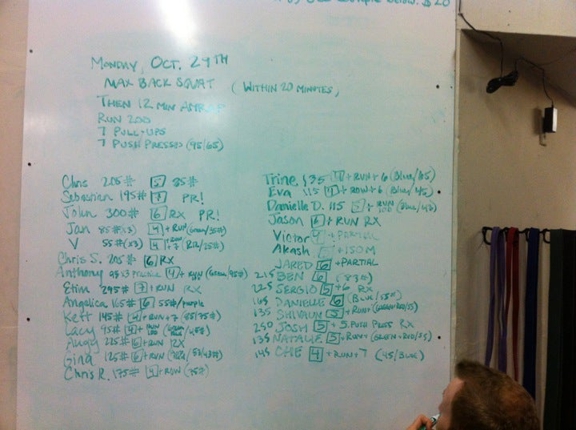 $20
Monday, Oct. 24th
Max Back Squat (Within 20 minutes)
Then 12 min AMRAP
Run 200
7 Pull-ups
7 Push Presses (95/65)
Chris 205# [5] 85#
Sebastien 195# [7] PR!
John 300# [6] RX PR!
Jan 85#(x3) [4]+Run
V 55#(x3) [4]
Chris S. 205# [6] RX
Anthony [4]+Run
Etim 295# [7]+Run RX
Angelica 165# [6] 55#/purple
Kett 145# [4]+Run+7 (65/75#)
Lacy 95# [4]+
Augg 225# [6]+Run RX
Gina 125# [6]+Run
Chris R. 175# [4]+Run (75#)
Trine 135 [4]+Run+6 (Blue/45)
Eva 115 +Row+6 (Blue/45)
Danielle D. 115 [5]+Run
Jason [6]+Run RX
Victor +Partial
Akash +150m
Jared [6]+Partial
215 Ben [6] (83#)
225 Sergio [5]+6 RX
165 Danielle [6] (Blue/55#)
135 Shivaun [5]+Run
250 Josh [5]+5 Push Press RX
135 Natalie [5]+Run+
145 Che [4]+Run+7 (45/Blue)